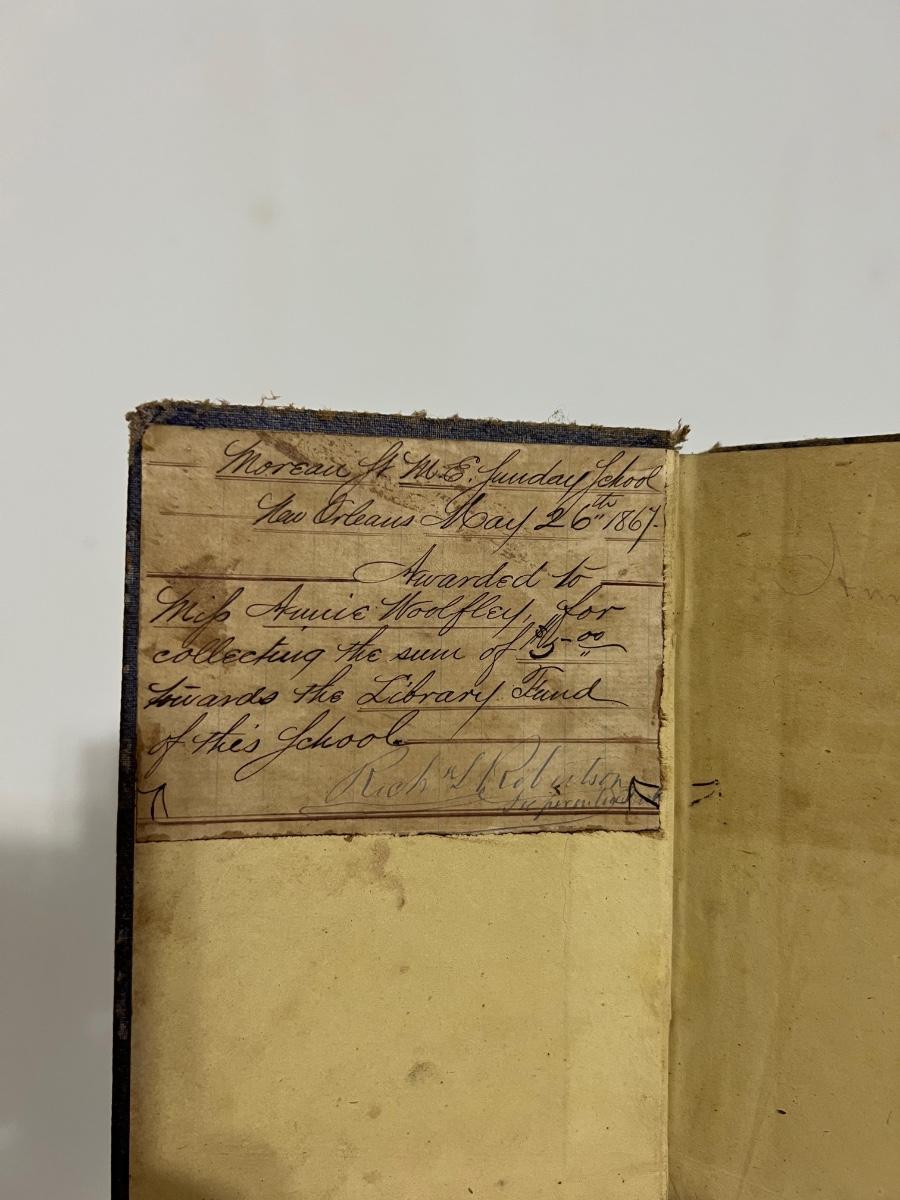 Moreau St. M.E. Sunday School
New Orleans May 26th 1867.
Awarded to
Miss Annie Woolfley, for
collecting the sum of $5.00
towards the Library Fund
of this School
Richd L Robertson
Superintendent